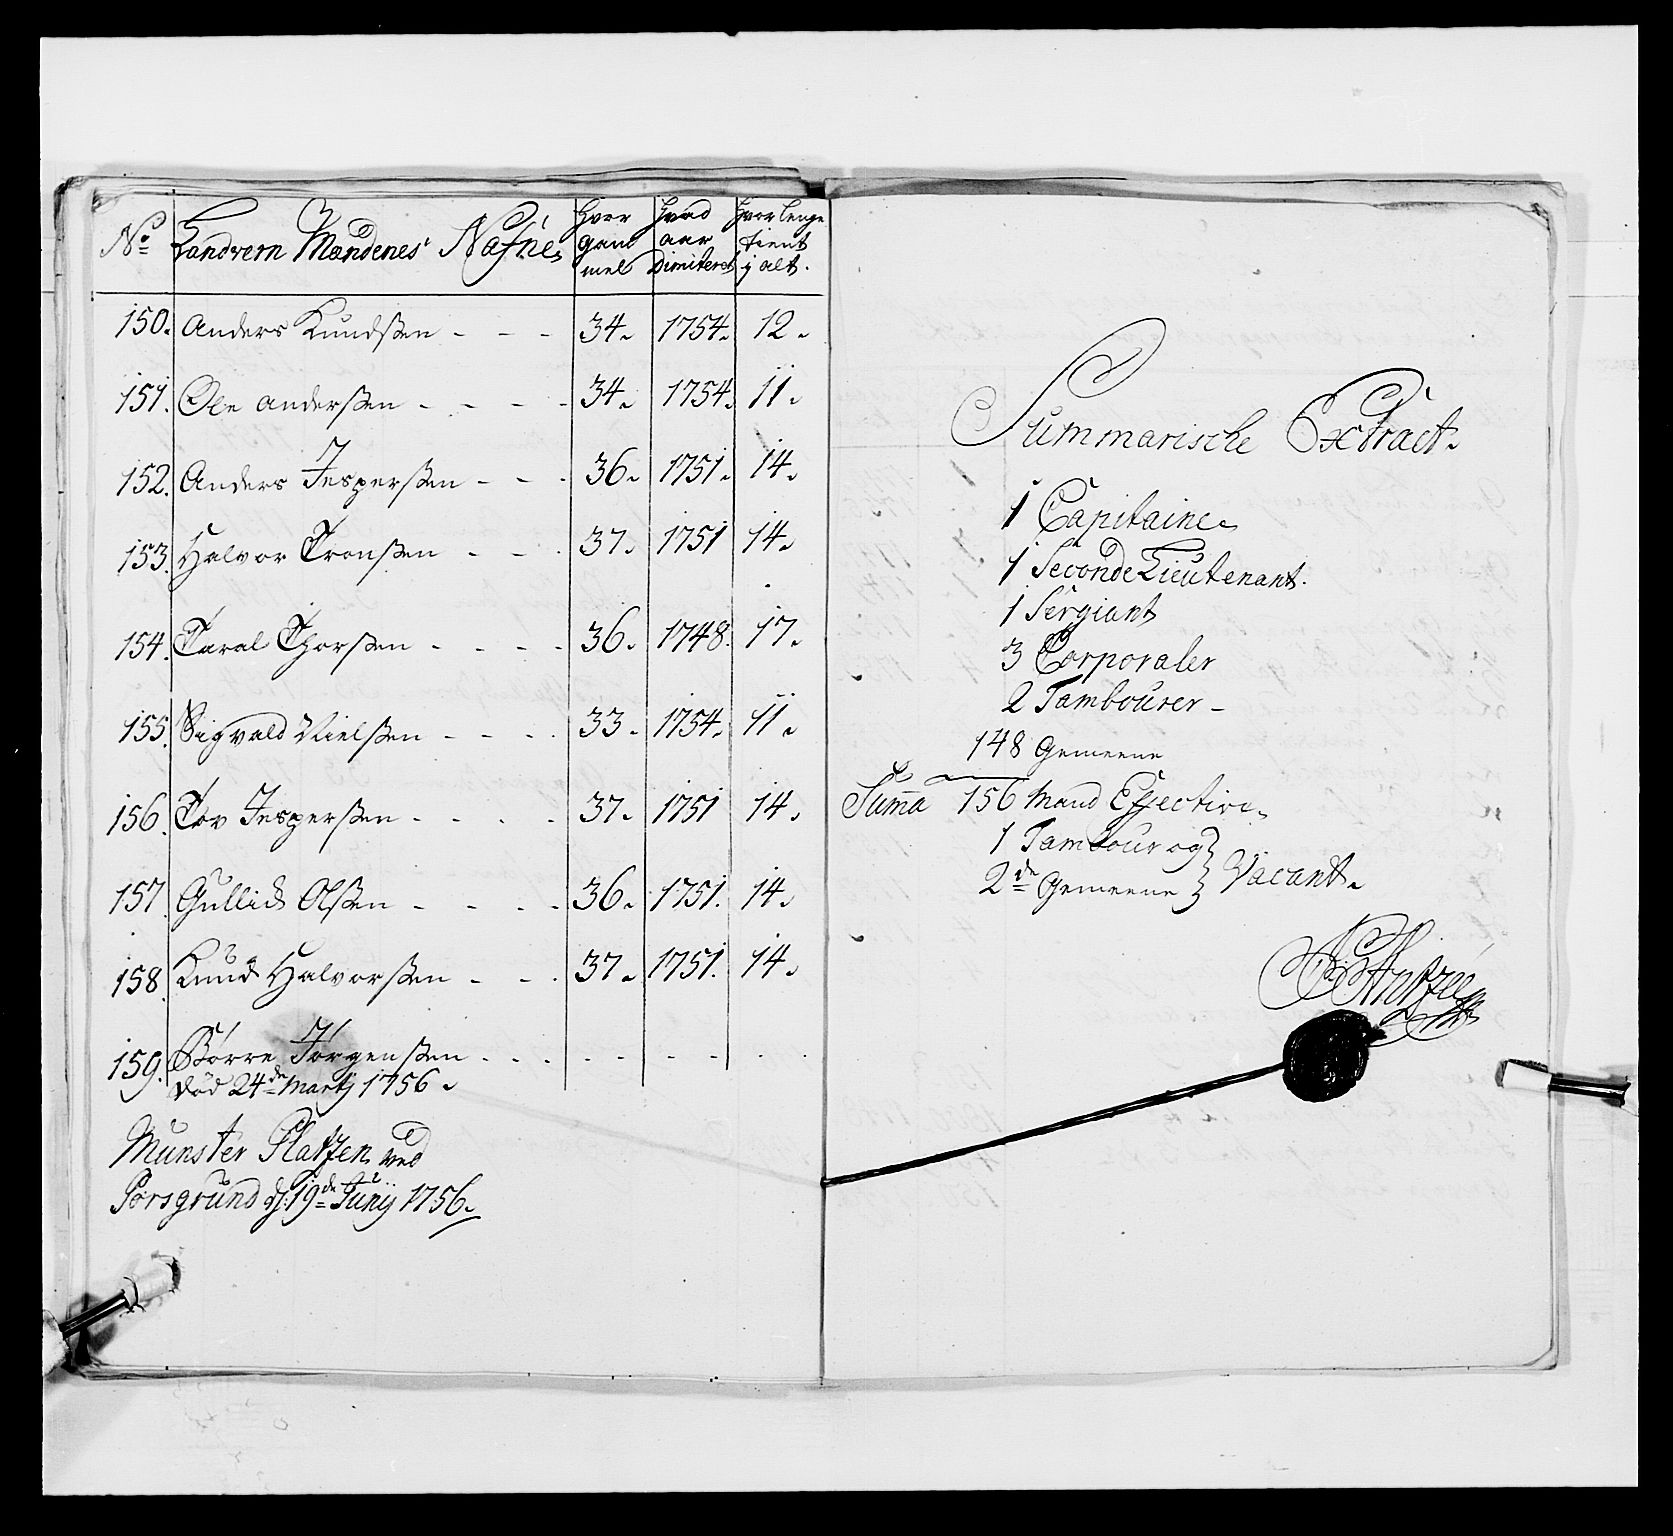 No Landvern Mændenes Nafne Hvor gam mel Hvad aar Dimiteret Hvor lenge tient i alt.
150. Anders Knudsßen - - - 34. 1754. 12.
151. Ole Anderßen - - - - 34. 1754. 11.
152. Anders Jesperßen - - - 36. 1751. 14.
153. Halvor Tronßen - - - 37. 1751 14.
154. Taral Thorßen - - - - 36. 1748. 17.
155. Sigvald Nielßen - - - - 33. 1754. 11.
156. Tov Jesperßen - - - - 37. 1751 14.
157. Gullid Olßen - - - - 36. 1751. 14.
158. Knud Halvorßen - - - 37. 1751. 14.
159. Børre Jørgenßen - - - - - - - - -
død 24de Martij 1756.
Munster Platzen ved
Porsgrund d: 19de Junij 1756.
Summarische Extract.
1 Capitaine
1 Seconde Lieutenant.
1 Sergiant
3 Corporaler
2 Tambourer -
148 Gemeene
Suma 156 Mand Effective.
1 Tambour og
2de Gemeene } Vacant.